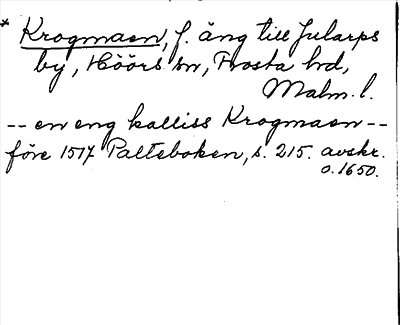 * Krogmaen, f. äng till Jularps
by, Höörs sn, Frosta hd,
Malm. l.
-- en eng kalliss Krogmaen --
före 1517 Palteboken, s. 215. avskr.
o. 1650.